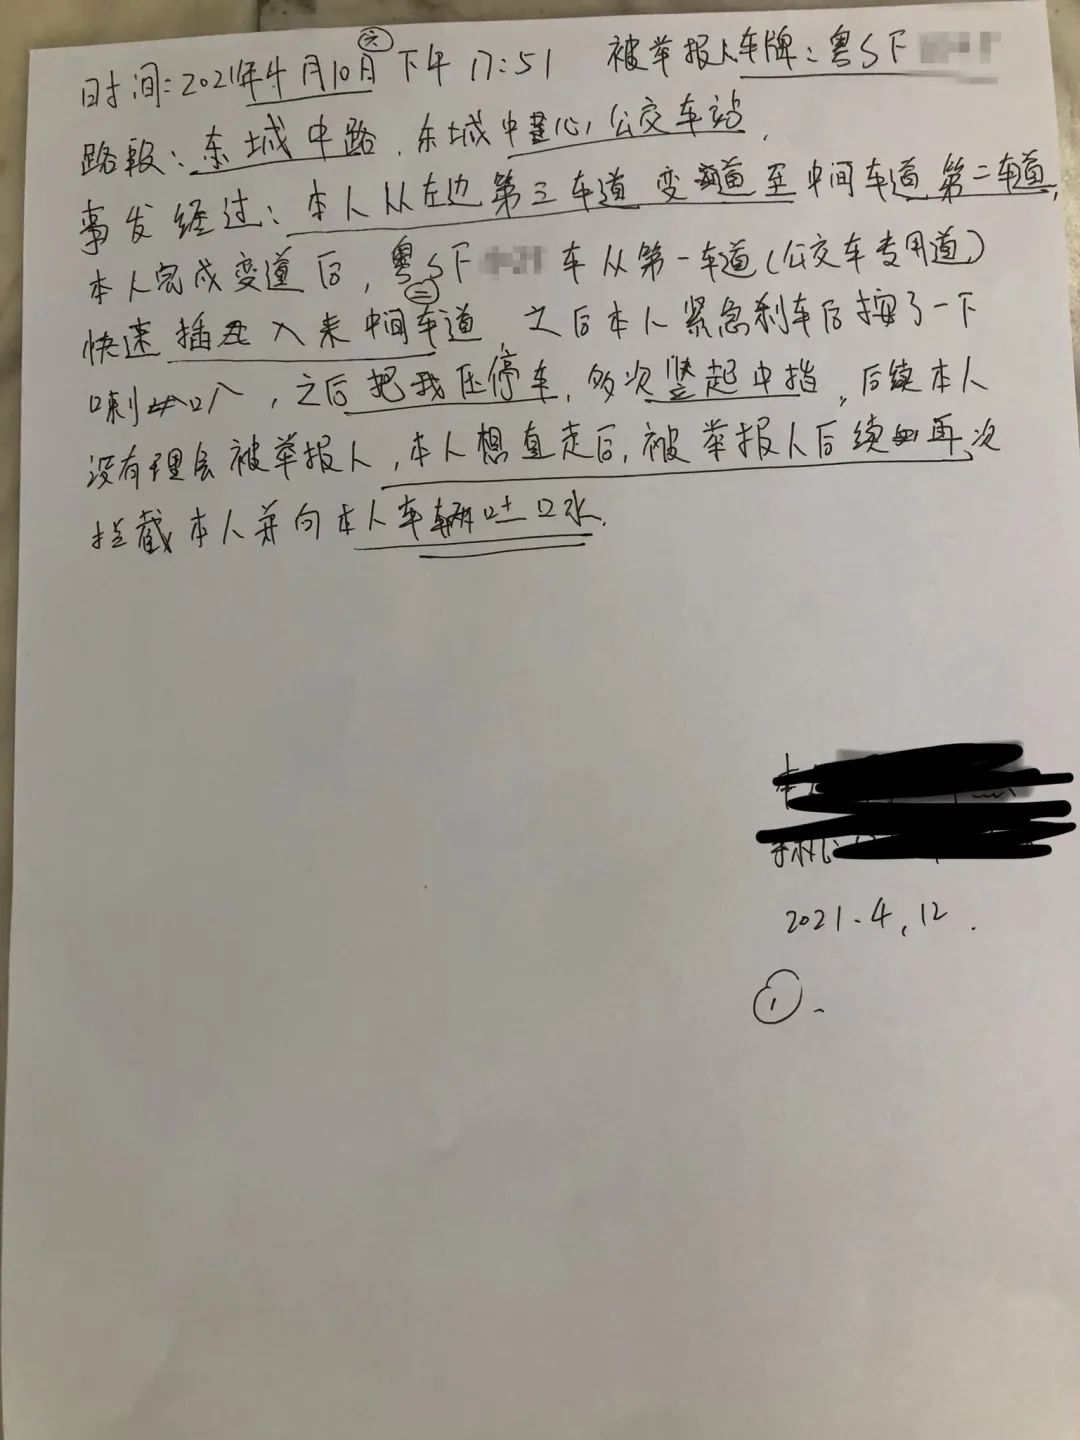 ㊅
时间:2021年4月10日下午17:51 被举报人车牌:粤S F
路段:东城中路.东城中心公交车站.
事发经过:本人从左边第三车道变道至中间车道第二车道,
本人完成变道后,粤S F 车从第一车道(公交车专用道)
快速插入来中间车道㊁,之后本人紧急刹车后按了一下
喇叭,之后把我压停车,多次竖起中指,后续本人
没有理会被举报人,本人想直走后,被举报人后续再次
拦截本人并向本人车辆吐口水.
2021.4.12.
①.